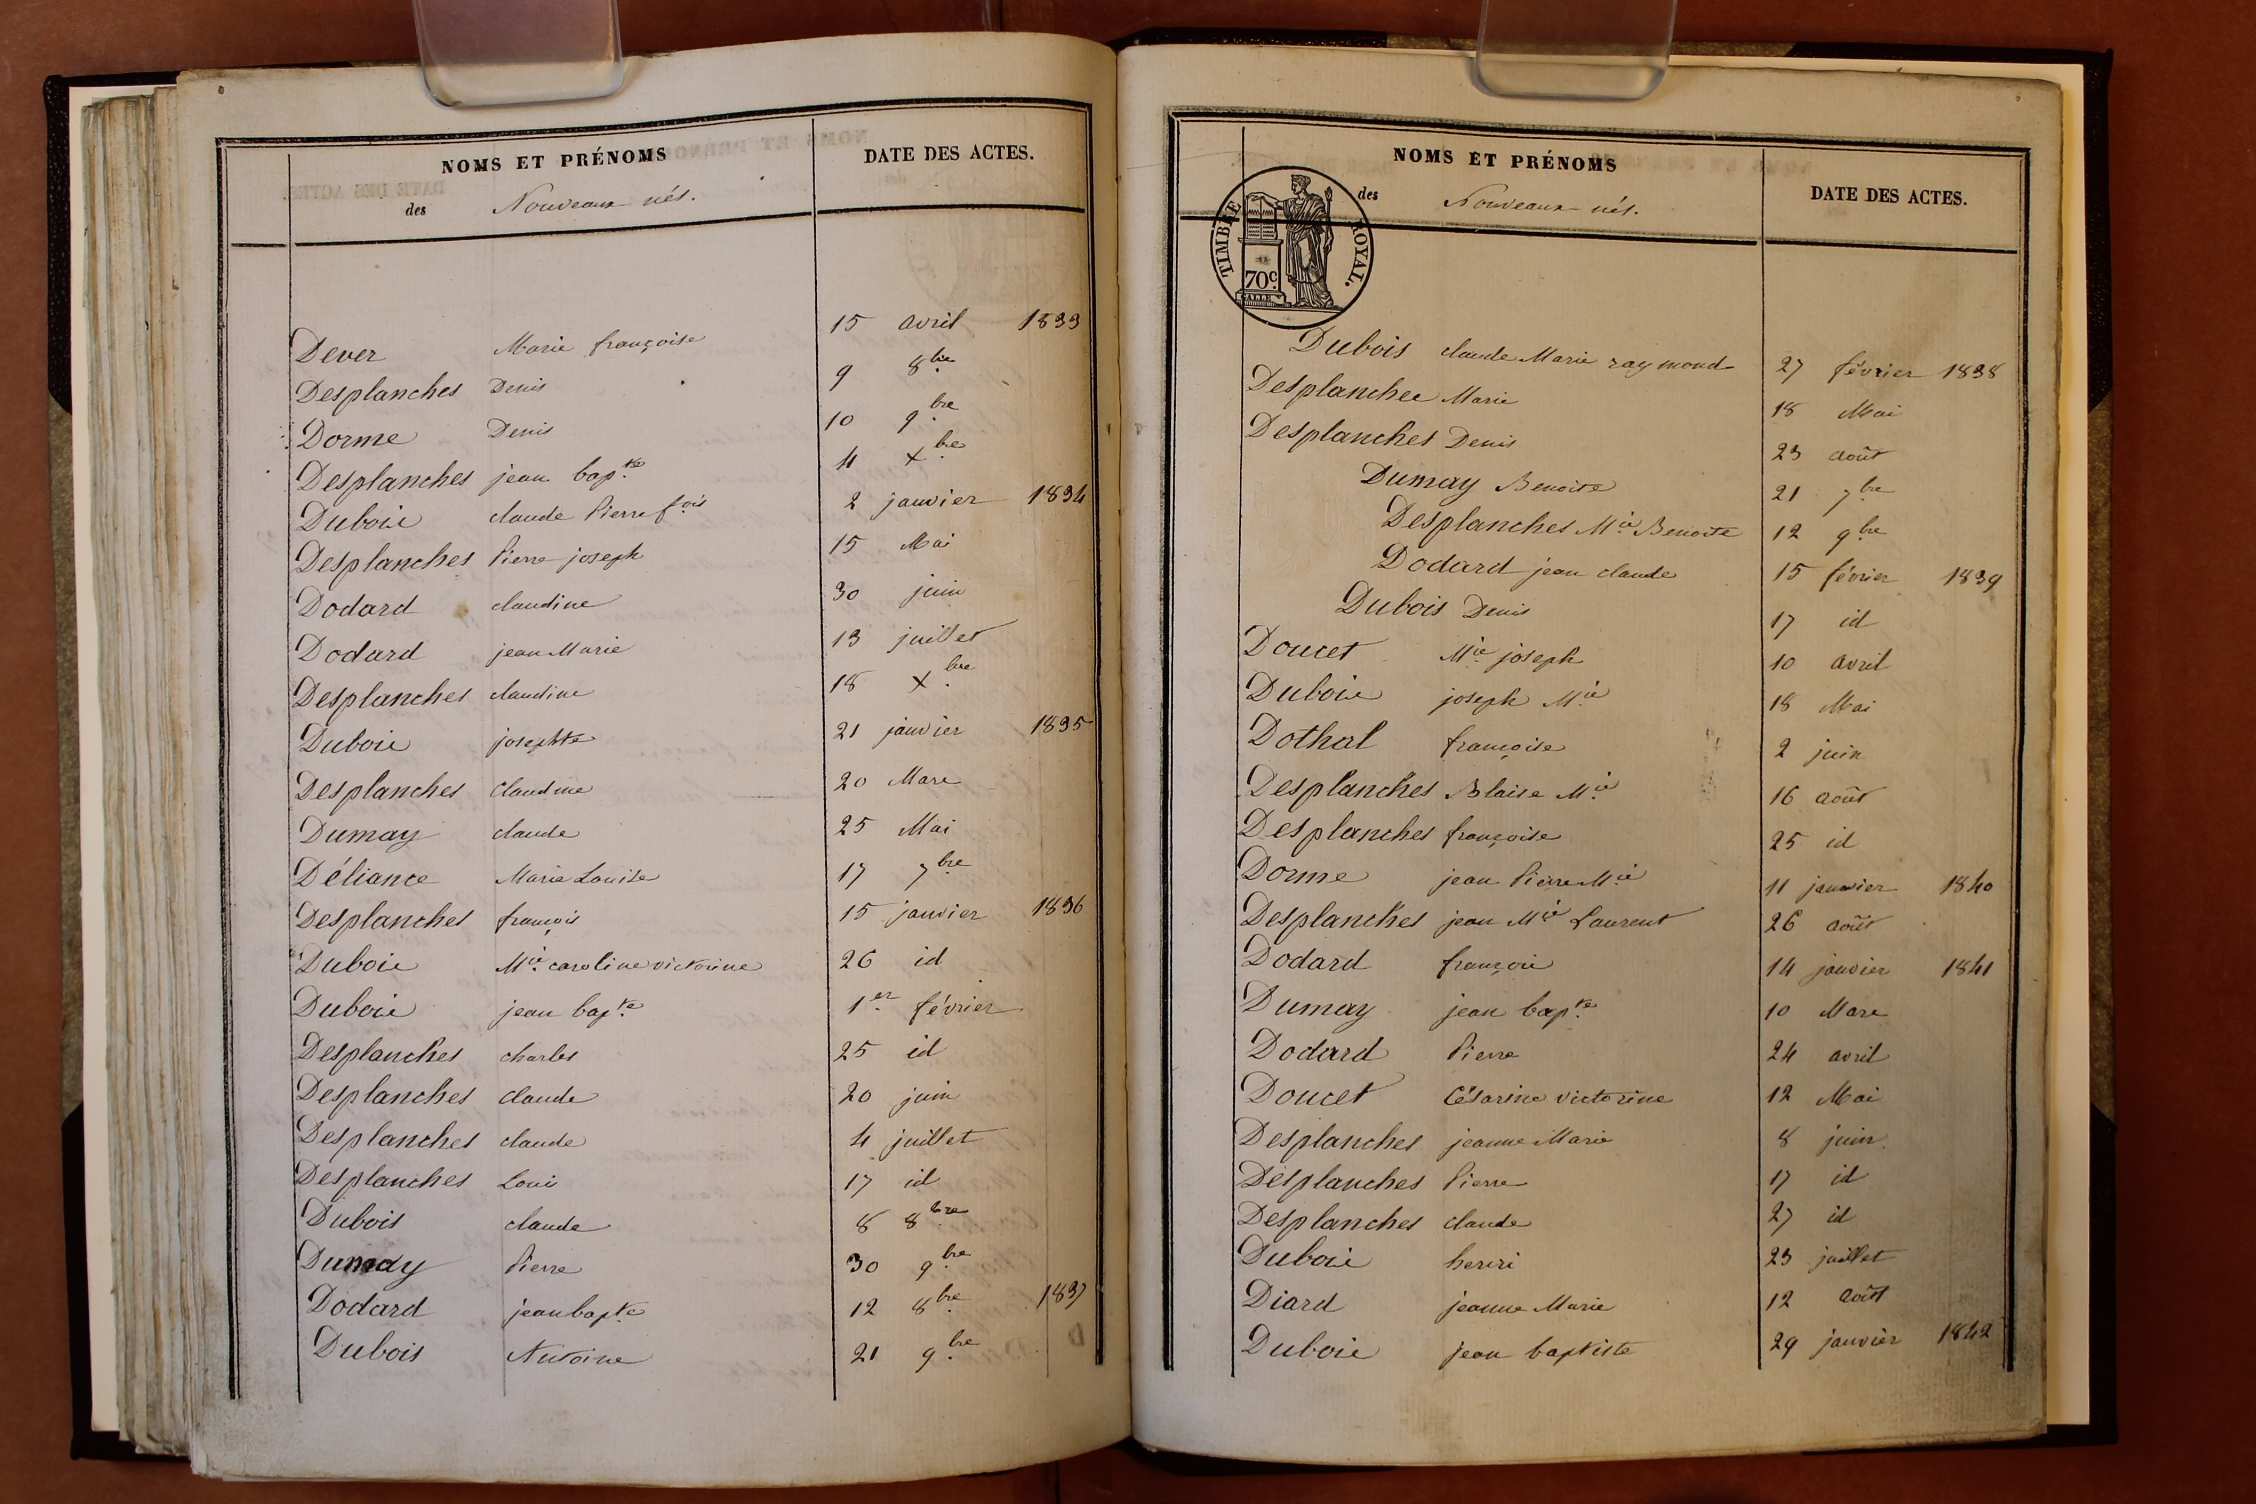 NOMS ET PRÉNOMS
DATE DES ACTES.
des Nouveaux nés.
Dever Marie françoise 15 avril 1833
Desplanches Denis 9 8bre
Dorme Denis 10 9bre
Desplanches jean bapte 4 xbre
Dubois claude Pierre fois 2 janvier 1834
Desplanches Pierre joseph 15 Mai
Dodard claudine 30 juin
Dodard jean Marie 13 juillet
Desplanches claudine 18 xbre
Dubois josephte 21 janvier 1835
Desplanches claudine 20 Mars
Dumay claude 25 Mai
Déliance Marie Louise 17 7bre
Desplanches françois 15 janvier 1836
Dubois Mie caroline victorine 26 id
Dubois jean bapte 1er février
Desplanches charles 25 id
Desplanches claude 20 juin
Desplanches claude 4 juillet
Desplanches Loui 17 id
Dubois claude 8 8bre
Dumay Pierre 30 9bre
Dodard jean bapte 12 8bre 1837
Dubois Antoine 21 9bre
NOMS ET PRÉNOMS
DATE DES ACTES.
des Nouveaux nés.
TIMBRE ROYAL.
70c.
Dubois claude Marie raymond 27 février 1838
Desplanches Marie 18 Mai
Desplanches Denis 23 août
Dumay Benoite 21 7bre
Desplanches Mie Benoite 12 9bre
Dodard jean claude 15 février 1839
Dubois Denis 17 id
Doucet Mie joseph 10 avril
Dubois joseph Mie 18 Mai
Dothal françoise 2 juin
Desplanches Blaise Mie 16 août
Desplanches françoise 25 id
Dorme jean Pierre Mie 11 janvier 1840
Desplanches jean Mie Laurent 26 août
Dodard françois 14 janvier 1841
Dumay jean bapte 10 Mars
Dodard Pierre 24 avril
Doucet Césarine victorine 12 Mai
Desplanches jeanne Marie 8 juin
Desplanches Pierre 17 id
Desplanches claude 27 id
Dubois henri 23 juillet
Diard jeanne Marie 12 août
Dubois jean baptiste 29 janvier 1842